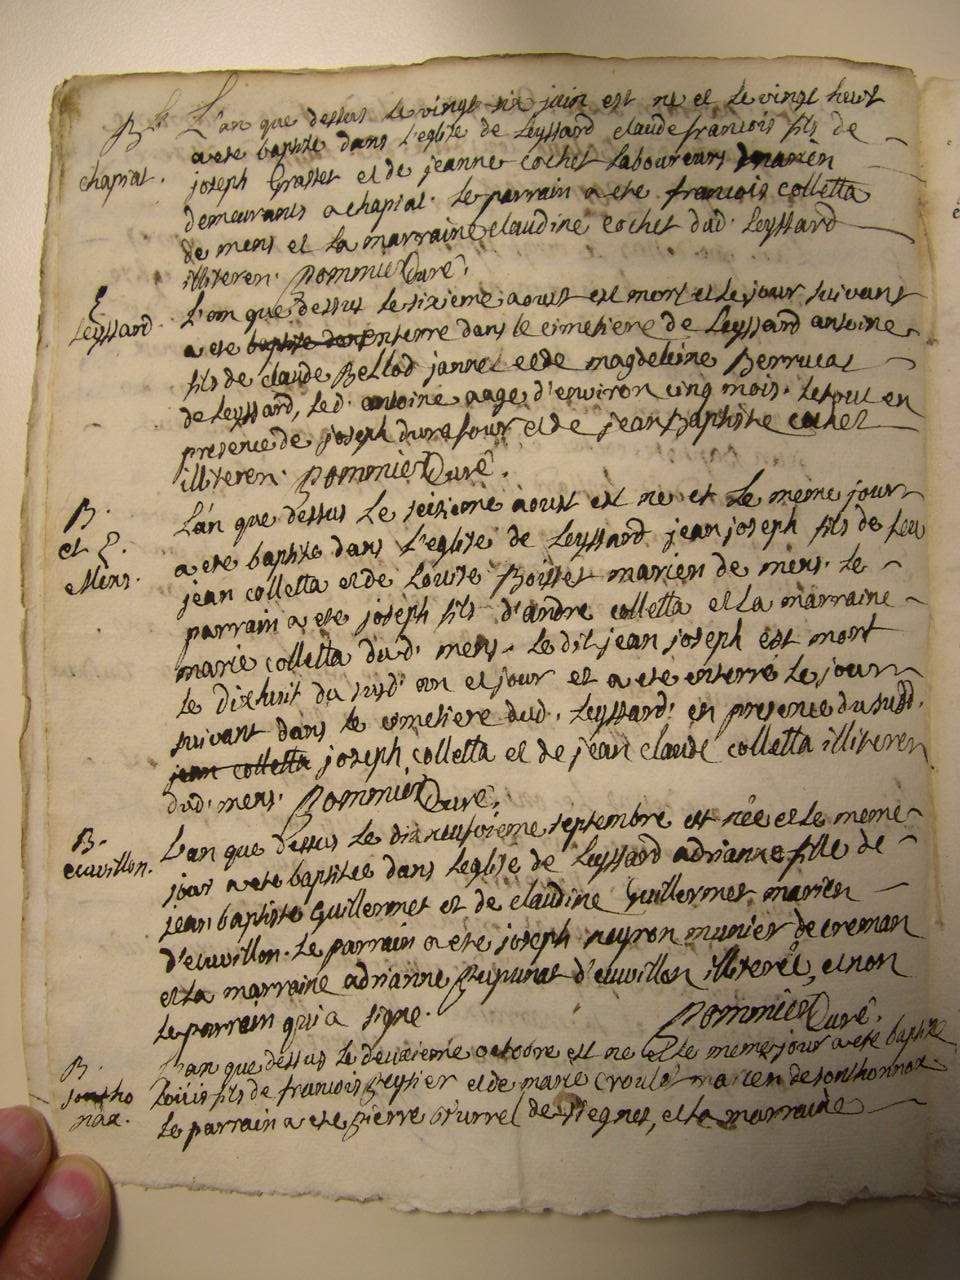 B.
chapiat.
L'an que dessus le vingt six juin est né et le vingt heut
a ete baptise dans l'eglise de Leyssard claude francois fils de
joseph Grasset et de jeanne cochet laboureurs
demeurants a chapiat. le parrain a ete francois colletta
de mens et la marraine claudine cochet dud. Leyssard
illiteren. Pommier Curé.
Leyssard.
L'an que dessus le sixieme aoust est mort et le jour suivant
a ete baptise dans enterre dans le cimetiere de Leyssard antoine
fils de claude Bellod jannet et de magdeleine Berrucat
de Leyssard, led. antoine aage d'environ cinq mois. le tout en
presence de joseph durafour et de jean Baptiste cochet
illiteren. Pommier Curé.
B.
et
Mens.
L'an que dessus le seizieme aoust est né et le meme jour
a ete baptise dans l'eglise de Leyssard jean joseph fils de feu
jean colletta et de Louise Boisset marien de mens. le
parrain a ete joseph fils d'andre colletta et la marraine
marie colletta dud. mens. le dit jean joseph est mort
le dixhuit du susd. an et jour et a ete enterré le jour
suivant dans le cimetiere dud. Leyssard. en presence du susd.
jean colletta joseph colletta et de jean claude colletta illiteren
dud. mens. Pommier Curé.
B.
ecuvillon.
L'an que dessus le dixneufvieme septembre est née et le meme
jour a ete baptisee dans l'eglise de Leyssard adrianne fille de
jean baptiste Guillermet et de claudine Guillermet marien
d'ecuvillon. le parrain a ete joseph neyron munier de creman
et la marraine adrianne d'ecuvillon illiteré, et non
le parrain qui a signe.
Pommier Curé.
B.
sontho
nax.
L'an que dessus le deuxieme octobre est né et le meme jour a ete baptise
Loüis fils de francois et de marie marien de sonthonnax
le parrain a ete pierre de et la marraine